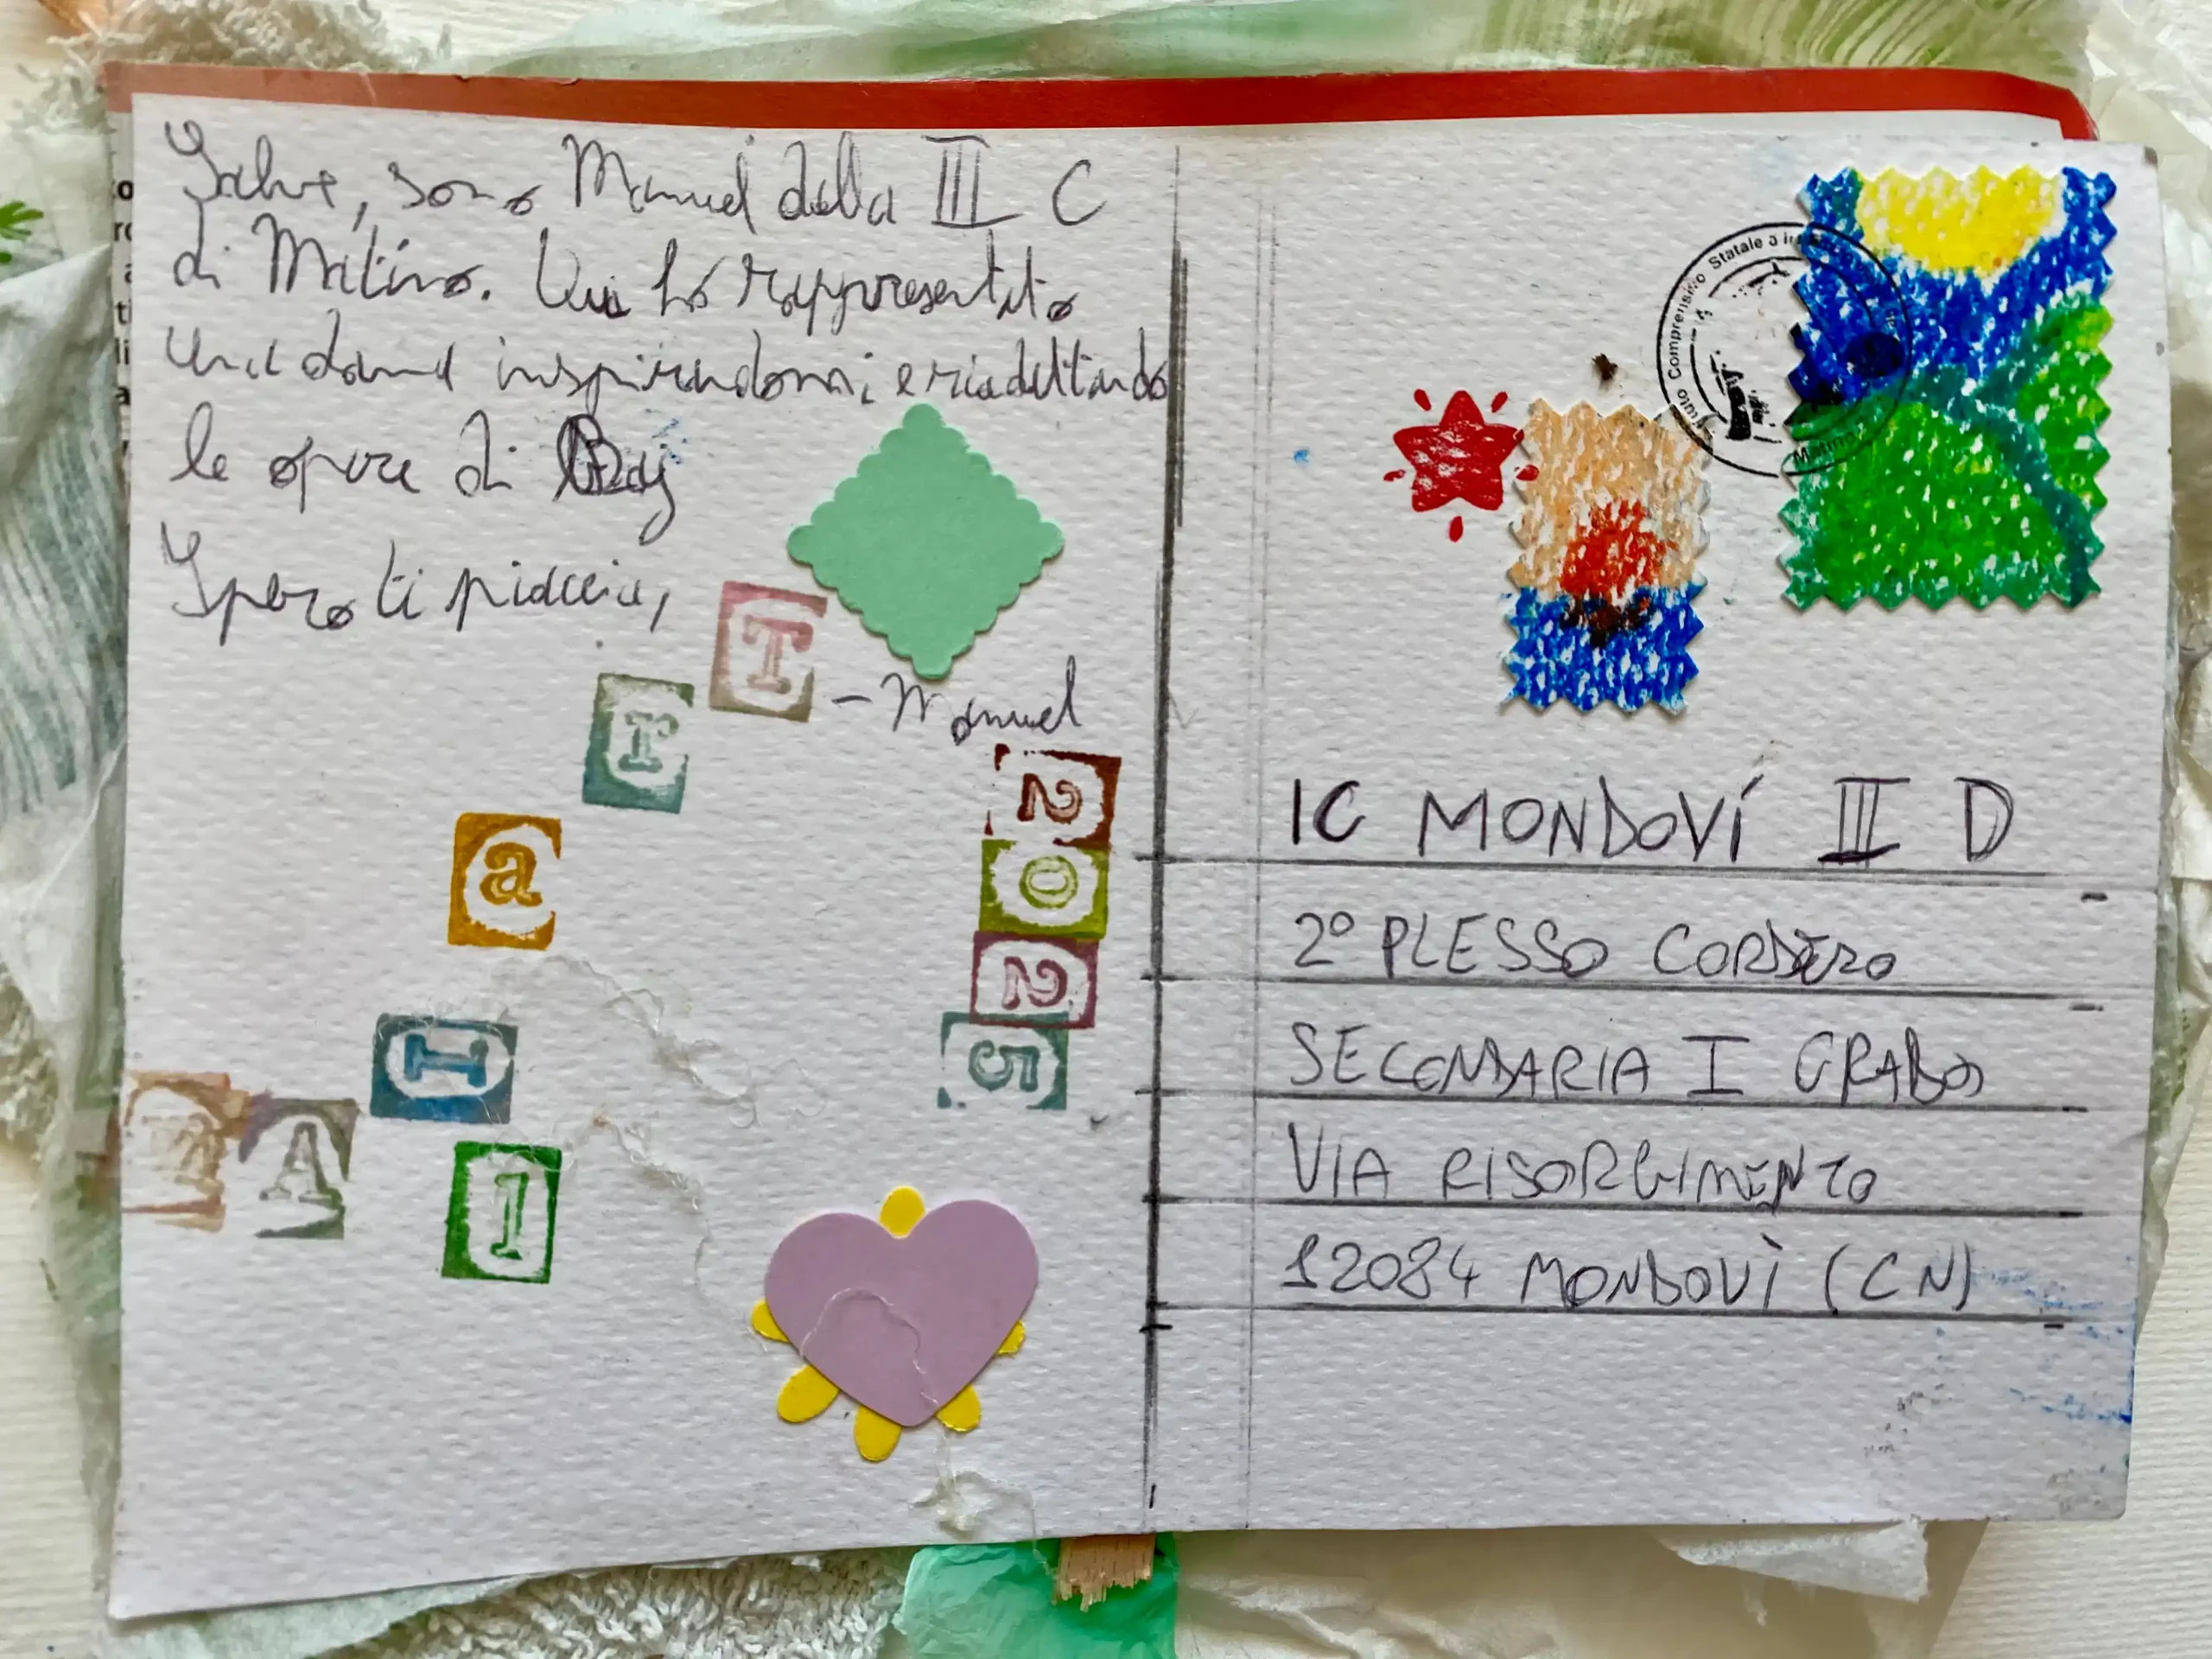 Salve, sono Manuel della III C
di Matino. Qui ho rappresentato
una dama inspirandomi e riadattando
le opere di Baj
Spero ti piaccia,
- Manuel
T
r
a
I
l
M A
2
0
2
5
Istituto Comprensivo Statale a
Matino
IC MONDOVÍ III D
2° PLESSO CORDERO
SECONDARIA I GRADO
VIA RISORGIMENTO
12084 MONDOVÌ (CN)